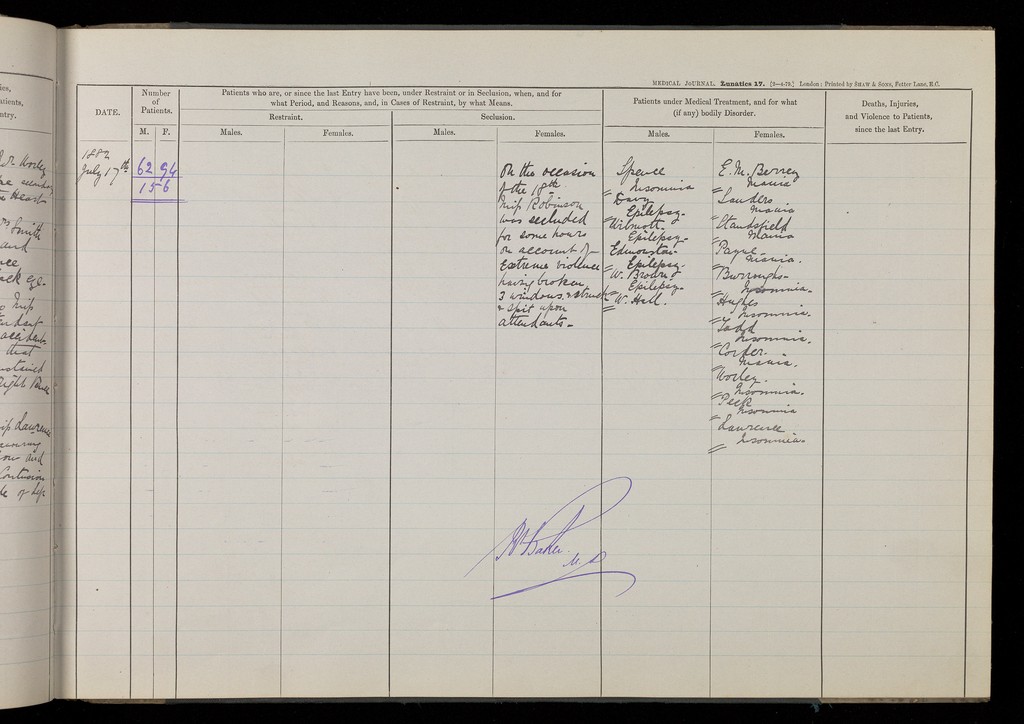 MEDICAL JOURNAL. Lunatics 17. [2—4-79.] London: Printed by SHAW & SONS, Fetter Lane, E.C.
DATE.
Number
of
Patients.
M. F.
Patients who are, or since the last Entry have been, under Restraint or in Seclusion, when, and for
what Period, and Reasons, and, in Cases of Restraint, by what Means.
Restraint.
Males. Females.
Seclusion.
Males. Females.
Patients under Medical Treatment, and for what
(if any) bodily Disorder.
Males. Females.
Deaths, Injuries,
and Violence to Patients,
since the last Entry.
1882
July 17th
62 94
156
On the occasion
of the 18th
Miss Robinson
was secluded
for some hours
on account of
Extreme violence
having broken
3 windows, & struck
& spit upon
attendants -
Spence
Insomnia
Davy
Epilepsy -
Wilmott.
Epilepsy -
Edmonston
Epilepsy.
W. Brown
Epilepsy -
W. Hall.
E. M. Berrey
Mania
Sanders
Mania
Standsfield
Mania
Payne
Mania.
Burroughs -
Insomnia.
Hughes
Insomnia.
Insomnia.
Corder.
Mania.
Worley.
Insomnia.
Peek
Insomnia
Lawrence
Insomnia -
Baker.
M.D.
ies,
atients,
ntry.
Worley
Heart
Smith
and
eye -
Miss
accident
that
right
Miss Lawrence
and
Contusion
of left